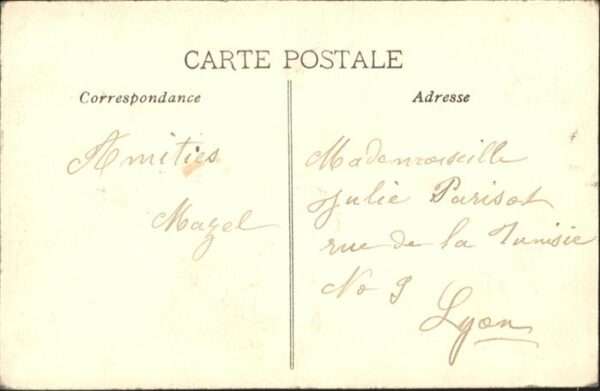 CARTE POSTALE
Correspondance
Adresse
Amitiés
Mazel
Mademoiselle
Julie Parisot
rue de la Tunisie
No 9
Lyon